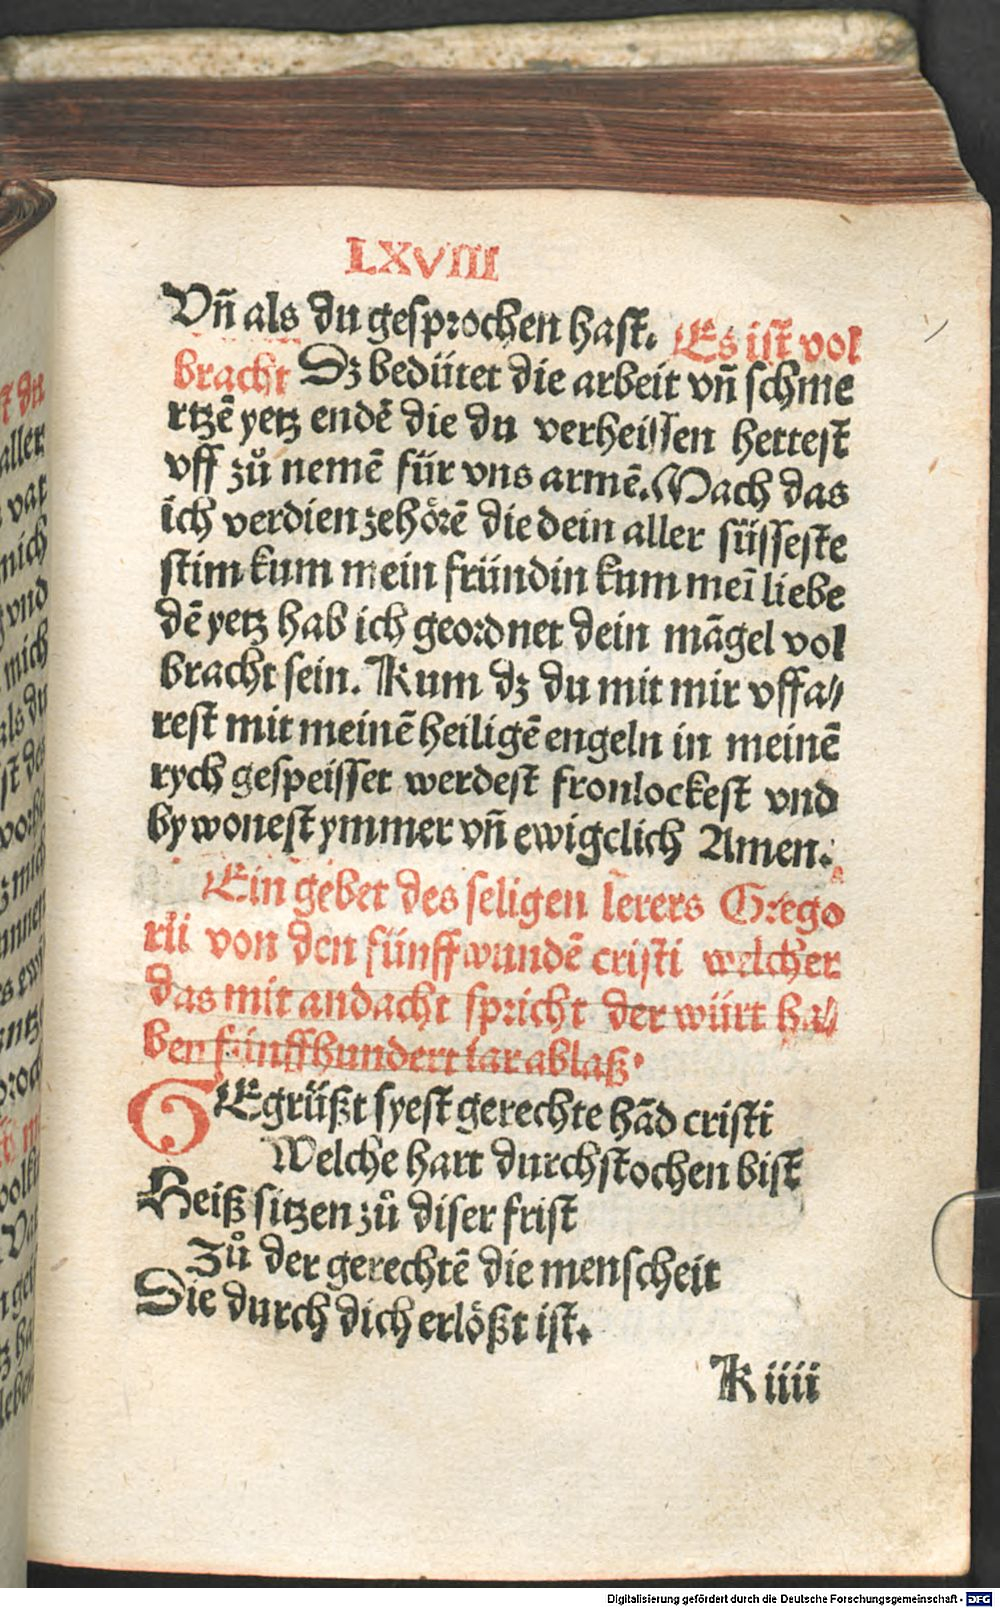 LXVIII
Vñ als du gesprochen hast. Es ist vol
bracht Dz bedütet die arbeit vñ schme
rtzē yetz endē die du verheissen hettest
vff zů nemē für vns armē. Mach das
ich verdien zehörē die dein aller süsseste
stim kum mein fründin kum meī liebe
dē yetz hab ich geordnet dein māgel vol
bracht sein. Kum dz du mit mir vffa//
rest mit meinē heiligē engeln in meinē
rych gespeisset werdest fronlockest vnd
by wonest ymmer vñ ewigclich Amen.
Ein gebet des seligen lerers Grego
rii von den fünff wundē cristi welcher
das mit andacht spricht der würt ha//
ben fünffhundert iar ablaß.
GEgrüßt syest gerechte hād cristi
Welche hart durchstochen bist
Heiß sitzen zů diser frist
Zů der gerechtē die menscheit
Die durch dich erlößt ist.
K iiii
st du
aller
var
mich
vnd
mich
als du
ewi
Digitalisierung gefördert durch die Deutsche Forschungsgemeinschaft - DFG